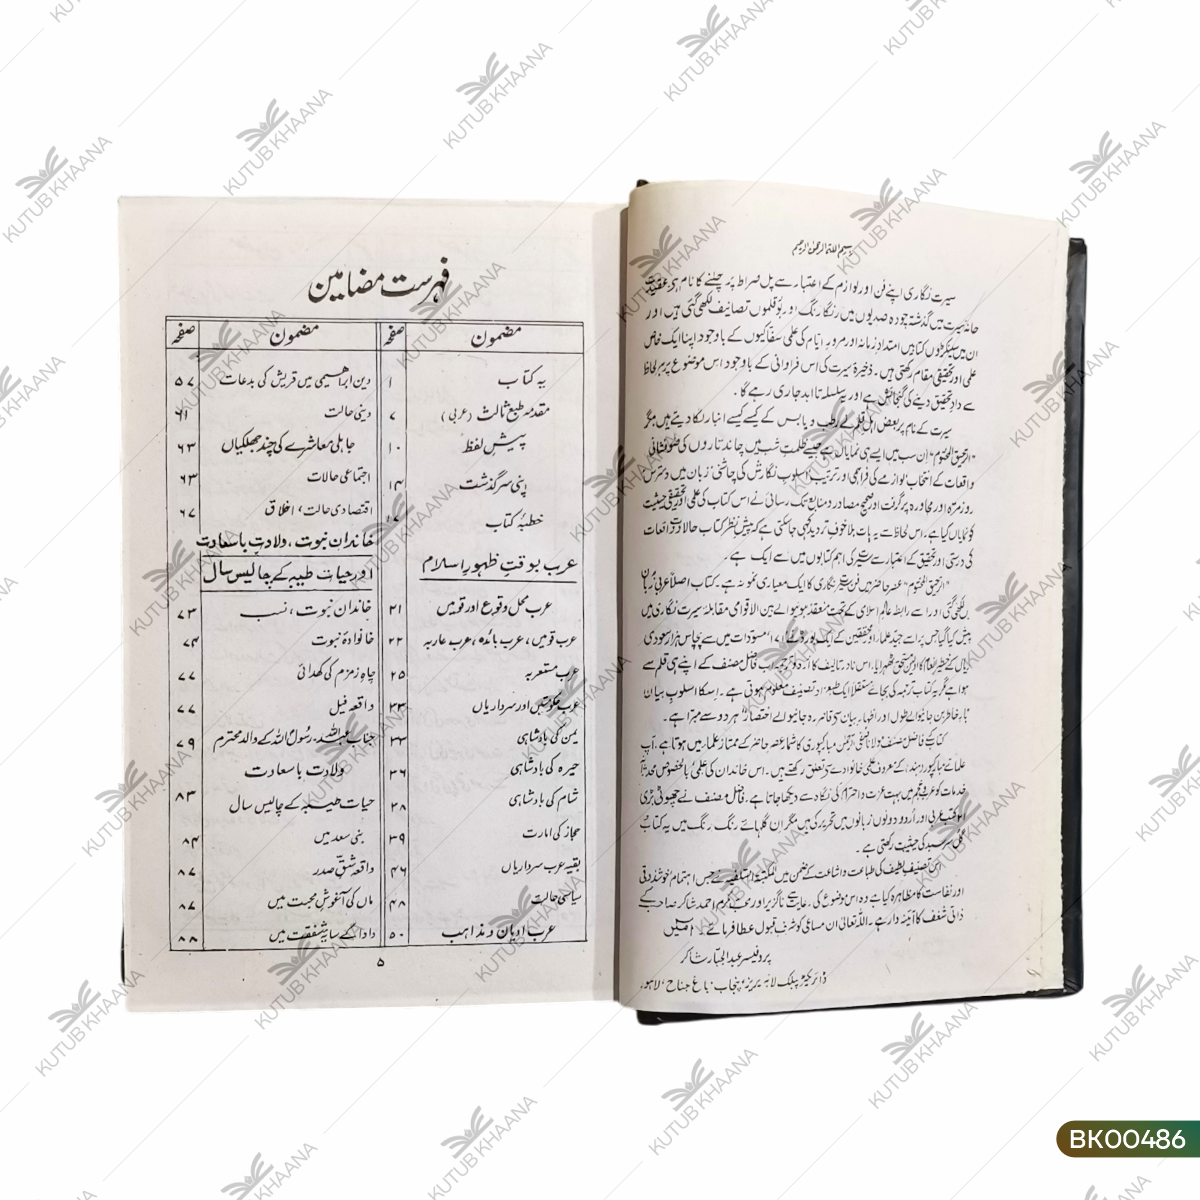 بسم اللہ الرحمٰن الرحیم
سیرت نگاری اپنے فن اور لوازم کے اعتبار سے پل صراط پر چلنے کا نام ہے، عقیدت
خانۂ سیرت میں گذشتہ چودہ صدیوں میں رنگا رنگ اور بوقلموں تصانیف لکھی گئی ہیں اور
ان میں سینکڑوں کتابیں امتدادِ زمانہ اور مرورِ ایام کی علمی سفاکیوں کے باوجود اپنا ایک خاص
علمی اور تحقیقی مقام رکھتی ہیں۔ ذخیرۂ سیرت کی اس فراوانی کے باوجود اس موضوع پر ہر لحاظ
سے دادِ تحقیق دینے کی گنجائش ہے اور یہ سلسلہ تا ابد جاری رہے گا۔
سیرت کے نام پر بعض اہلِ قلم نے رطب و یابس کے کیسے کیسے انبار لگا دیتے ہیں مگر
"الرحیق المختوم" ان سب میں ایسے ہی نمایاں ہے جیسے ظلمتِ شب میں چاند تاروں کی
واقعات کے انتخاب، لوازمے کی فراہمی اور ترتیب، اسلوبِ نگارش کی چاشنی، زبان میں دسترس
روزمرہ اور محاورہ پر گرفت اور صحیح مصادر و منابع تک رسائی نے اس کتاب کی علمی اور تحقیقی حیثیت
کو نمایاں کیا ہے، اس لحاظ سے یہ بات بلا خوفِ تردید کہی جا سکتی ہے کہ پیش نظر کتاب حالات و واقعات
کی درستی اور تحقیق کے اعتبار سے سیرت کی اہم کتابوں میں سے ایک ہے۔
"الرحیق المختوم" عصرِ حاضر میں فنِ سیرت نگاری کا ایک معیاری نمونہ ہے۔ کتاب اصلاً عربی زبان
میں لکھی گئی اور اسے رابطہ عالم اسلامی کے تحت منعقد ہونیوالے بین الاقوامی مقابلۂ سیرت نگاری میں
پیش کیا گیا جس پر اسے جید علماء اور محققین کے ایک بورڈ نے ۱۷۱ مسودات میں سے پچاس ہزار سعودی
ریال کے اول مستحق ٹھہرایا۔ اس نادر تالیف کا اردو ترجمہ اب فاضل مصنف کے اپنے ہی قلم سے
ہوا ہے مگر یہ کتاب ترجمہ کی بجائے مستقلاً ایک طبع زاد تصنیف معلوم ہوتی ہے۔ اس کا اسلوبِ بیان
بارِ خاطر بن جانیوالے طول اور اظہار و بیان سے قاصر رہ جانیوالے اختصار ہر دو سے مبرا ہے۔
کتاب کے فاضل مصنف مولانا صفی الرحمٰن مبارکپوری کا شمار عصرِ حاضر کے ممتاز علماء میں ہوتا ہے، آپ
علمائے مبارکپور (ہند) کے معروف علمی خانوادے سے تعلق رکھتے ہیں۔ اس خاندان کی علمی بالخصوص محدثانہ
خدمات کو عرب و عجم میں بہت عزت و احترام کی نگاہ سے دیکھا جاتا ہے۔ فاضل مصنف نے چھوٹی بڑی
کتب عربی اور اُردو دونوں زبانوں میں تحریر کی ہیں مگر ان گلہائے رنگ رنگ میں یہ کتاب
گل سرسبد کی حیثیت رکھتی ہے۔
اس تصنیفِ لطیف کی طباعت و اشاعت کے ضمن میں المکتبۃ السلفیہ نے جس اہتمام، خوش ذوقی
اور نفاست کا مظاہرہ کیا ہے وہ اس موضوع کی رعایت سے ناگزیر اور محبِ مکرم احمد شاکر صاحب کے
ذاتی شغف کا آئینہ دار ہے۔ اللہ تعالیٰ ان مساعی کو شرفِ قبول عطا فرمائے۔ آمین
پروفیسر عبدالجبار شاکر
ڈائریکٹر پبلک لائبریریز، پنجاب، باغ جناح، لاہور۔
فہرست مضامین
مضمون صفحہ
یہ کتاب ۱
مقدمہ طبع ثالث (عربی) ۷
پیش لفظ ۱۰
اپنی سرگذشت ۱۴
خطبۂ کتاب ۱۷
عرب بوقتِ ظہورِ اسلام
عرب محل وقوع اور قومیں ۲۱
عرب قومیں، عرب بائدہ، عرب عاربہ ۲۲
عرب مستعربہ ۲۵
عرب حکومتیں اور سرداریاں ۳۳
یمن کی بادشاہی ۳۳
حیرہ کی بادشاہی ۳۶
شام کی بادشاہی ۳۸
حجاز کی امارت ۳۹
بقیہ عرب سرداریاں ۴۶
سیاسی حالت ۴۸
عرب ادیان و مذاہب ۵۰
مضمون صفحہ
دین ابراہیمی میں قریش کی بدعات ۵۷
دینی حالت ۶۱
جاہلی معاشرے کی چند جھلکیاں ۶۳
اجتماعی حالات ۶۳
اقتصادی حالت، اخلاق ۶۷
خاندان نبوت، ولادتِ باسعادت
اور حیات طیبہ کے چالیس سال
خاندان نبوت، نسب ۷۳
خانوادۂ نبوت ۷۴
چاہ زمزم کی کھدائی ۷۷
واقعہ فیل ۷۷
جناب عبداللہ۔ رسول اللہ کے والد محترم ۷۹
ولادت باسعادت
حیات طیبہ کے چالیس سال ۸۳
بنی سعد میں ۸۴
واقعہ شقِ صدر ۸۷
ماں کی آغوشِ محبت میں ۸۷
دادا کے سایۂ شفقت میں ۸۸
۵
KUTUB KHAANA
BK00486